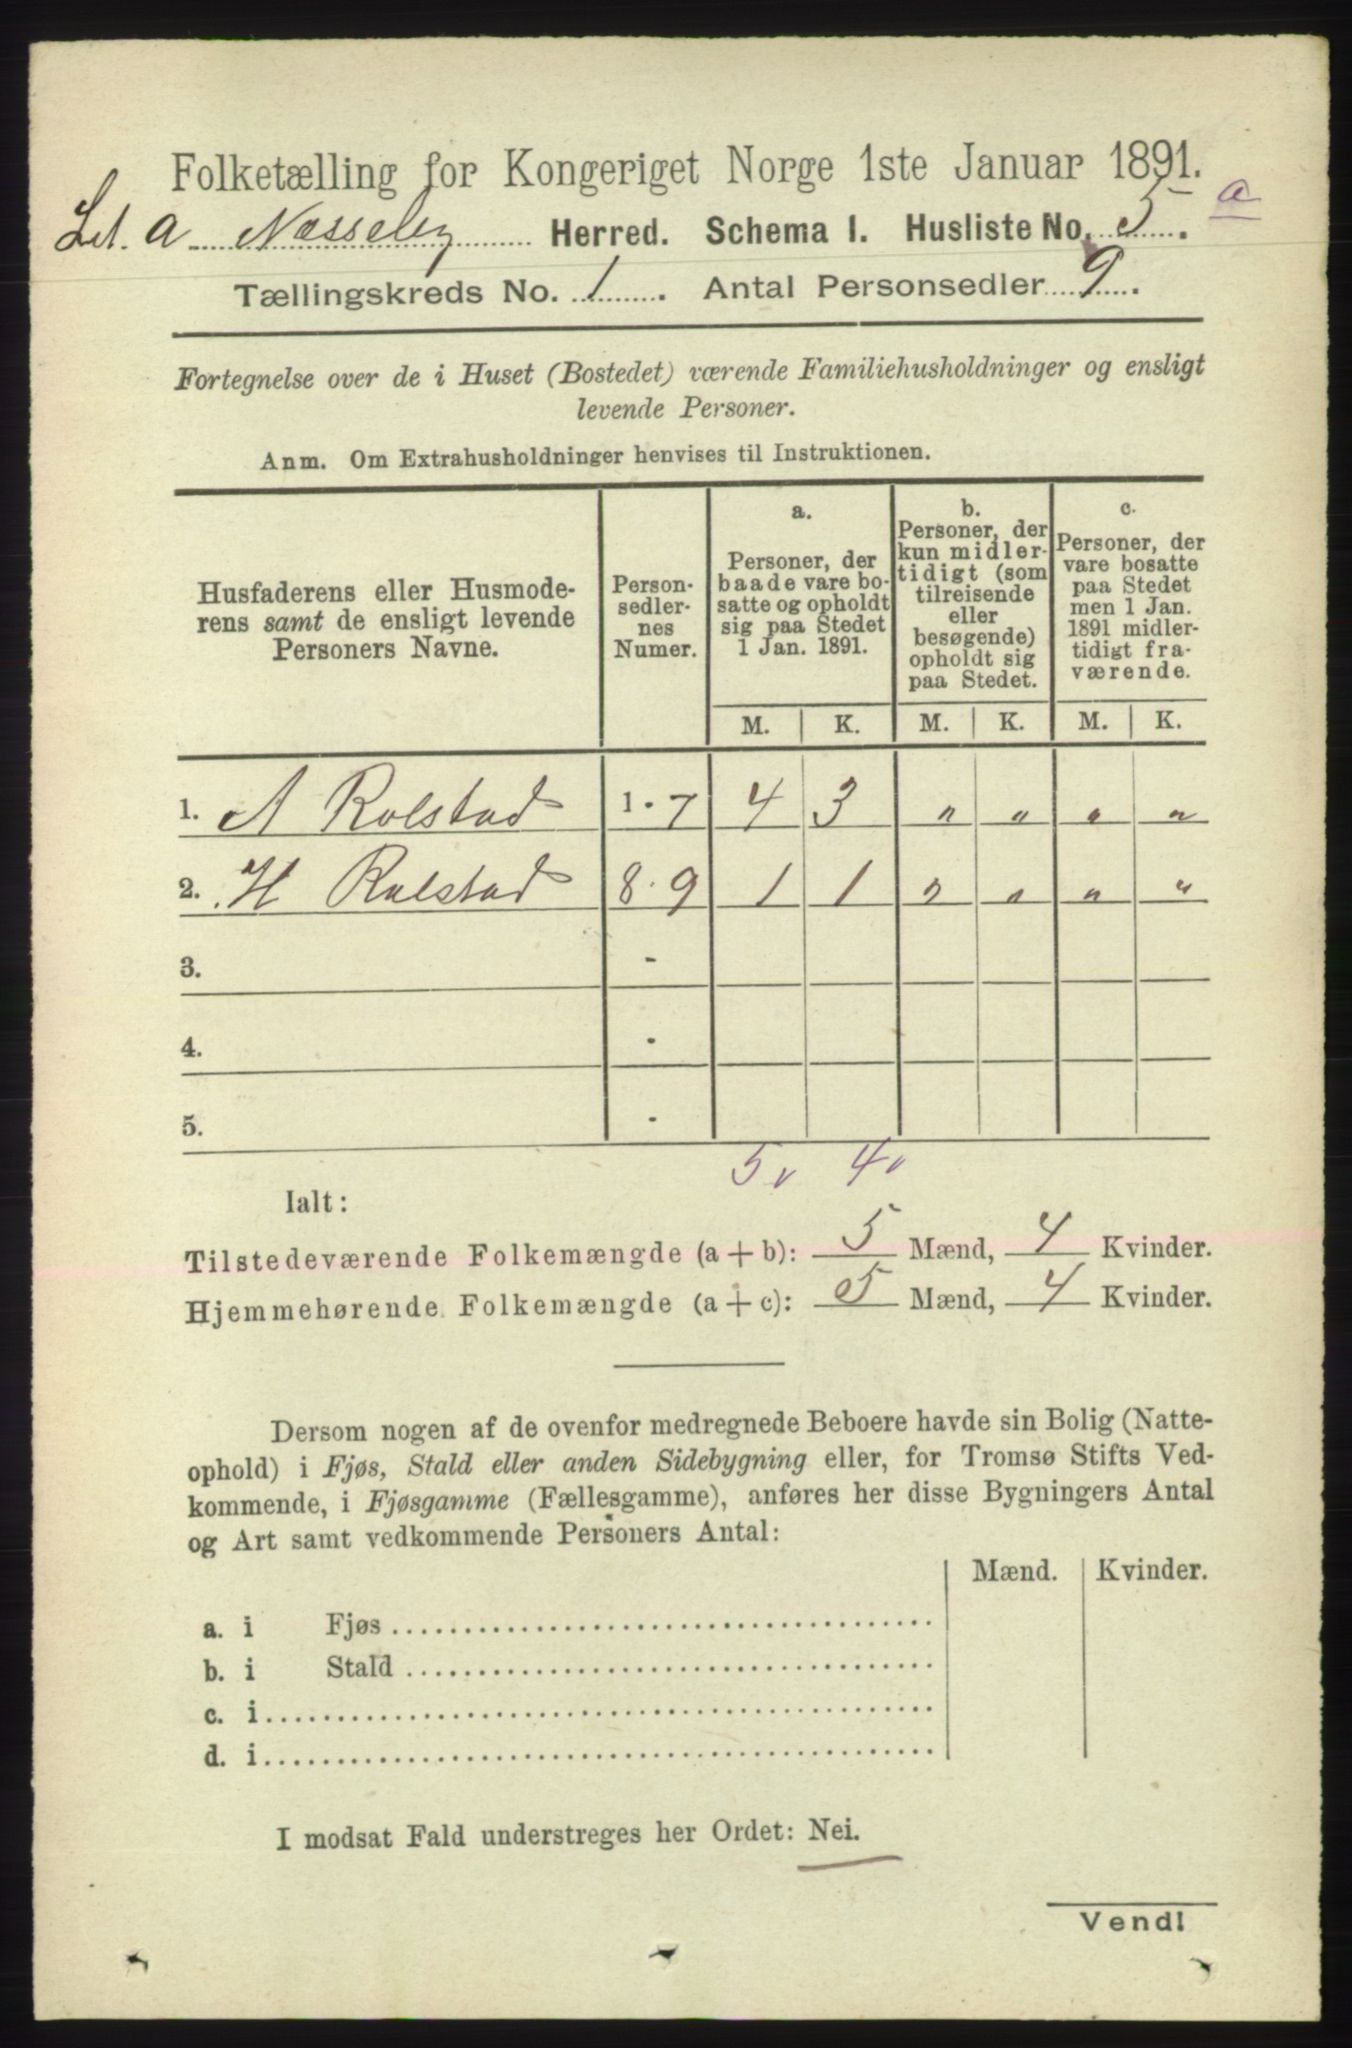 Folketælling for Kongeriget Norge 1ste Januar 1891.
Lit. a Nesseby Herred. Schema I. Husliste No. 5 a.
Tællingskreds No. 1. Antal Personsedler 9.
Fortegnelse over de i Huset (Bostedet) værende Familiehusholdninger og ensligt
levende Personer.
Anm. Om Extrahusholdninger henvises til Instruktionen.
Husfaderens eller Husmode-
rens samt de ensligt levende
Personers Navne.
Person-
sedler-
nes
Numer.
a.
Personer, der
baade vare bo-
satte og opholdt
sig paa Stedet
1 Jan. 1891.
b.
Personer, der
kun midler-
tidigt (som
tilreisende
eller
besøgende)
opholdt sig
paa Stedet.
c.
Personer, der
vare bosatte
paa Stedet
men 1 Jan.
1891 midler-
tidigt fra-
værende.
M. K. M. K. M. K.
1. A Rolstad 1-7 4 3 " " " "
2. H Rolstad 8-9 1 1 " " " "
3. -
4. -
5. -
5 v 4 v
Ialt:
Tilstedeværende Folkemængde (a + b): 5 Mænd, 4 Kvinder.
Hjemmehørende Folkemængde (a + c): 5 Mænd, 4 Kvinder.
Dersom nogen af de ovenfor medregnede Beboere havde sin Bolig (Natte-
ophold) i Fjøs, Stald eller anden Sidebygning eller, for Tromsø Stifts Ved-
kommende, i Fjøsgamme (Fællesgamme), anføres her disse Bygningers Antal
og Art samt vedkommende Personers Antal:
Mænd. Kvinder.
a. i Fjøs
b. i Stald
c. i
d. i
I modsat Fald understreges her Ordet: Nei.
Vend!